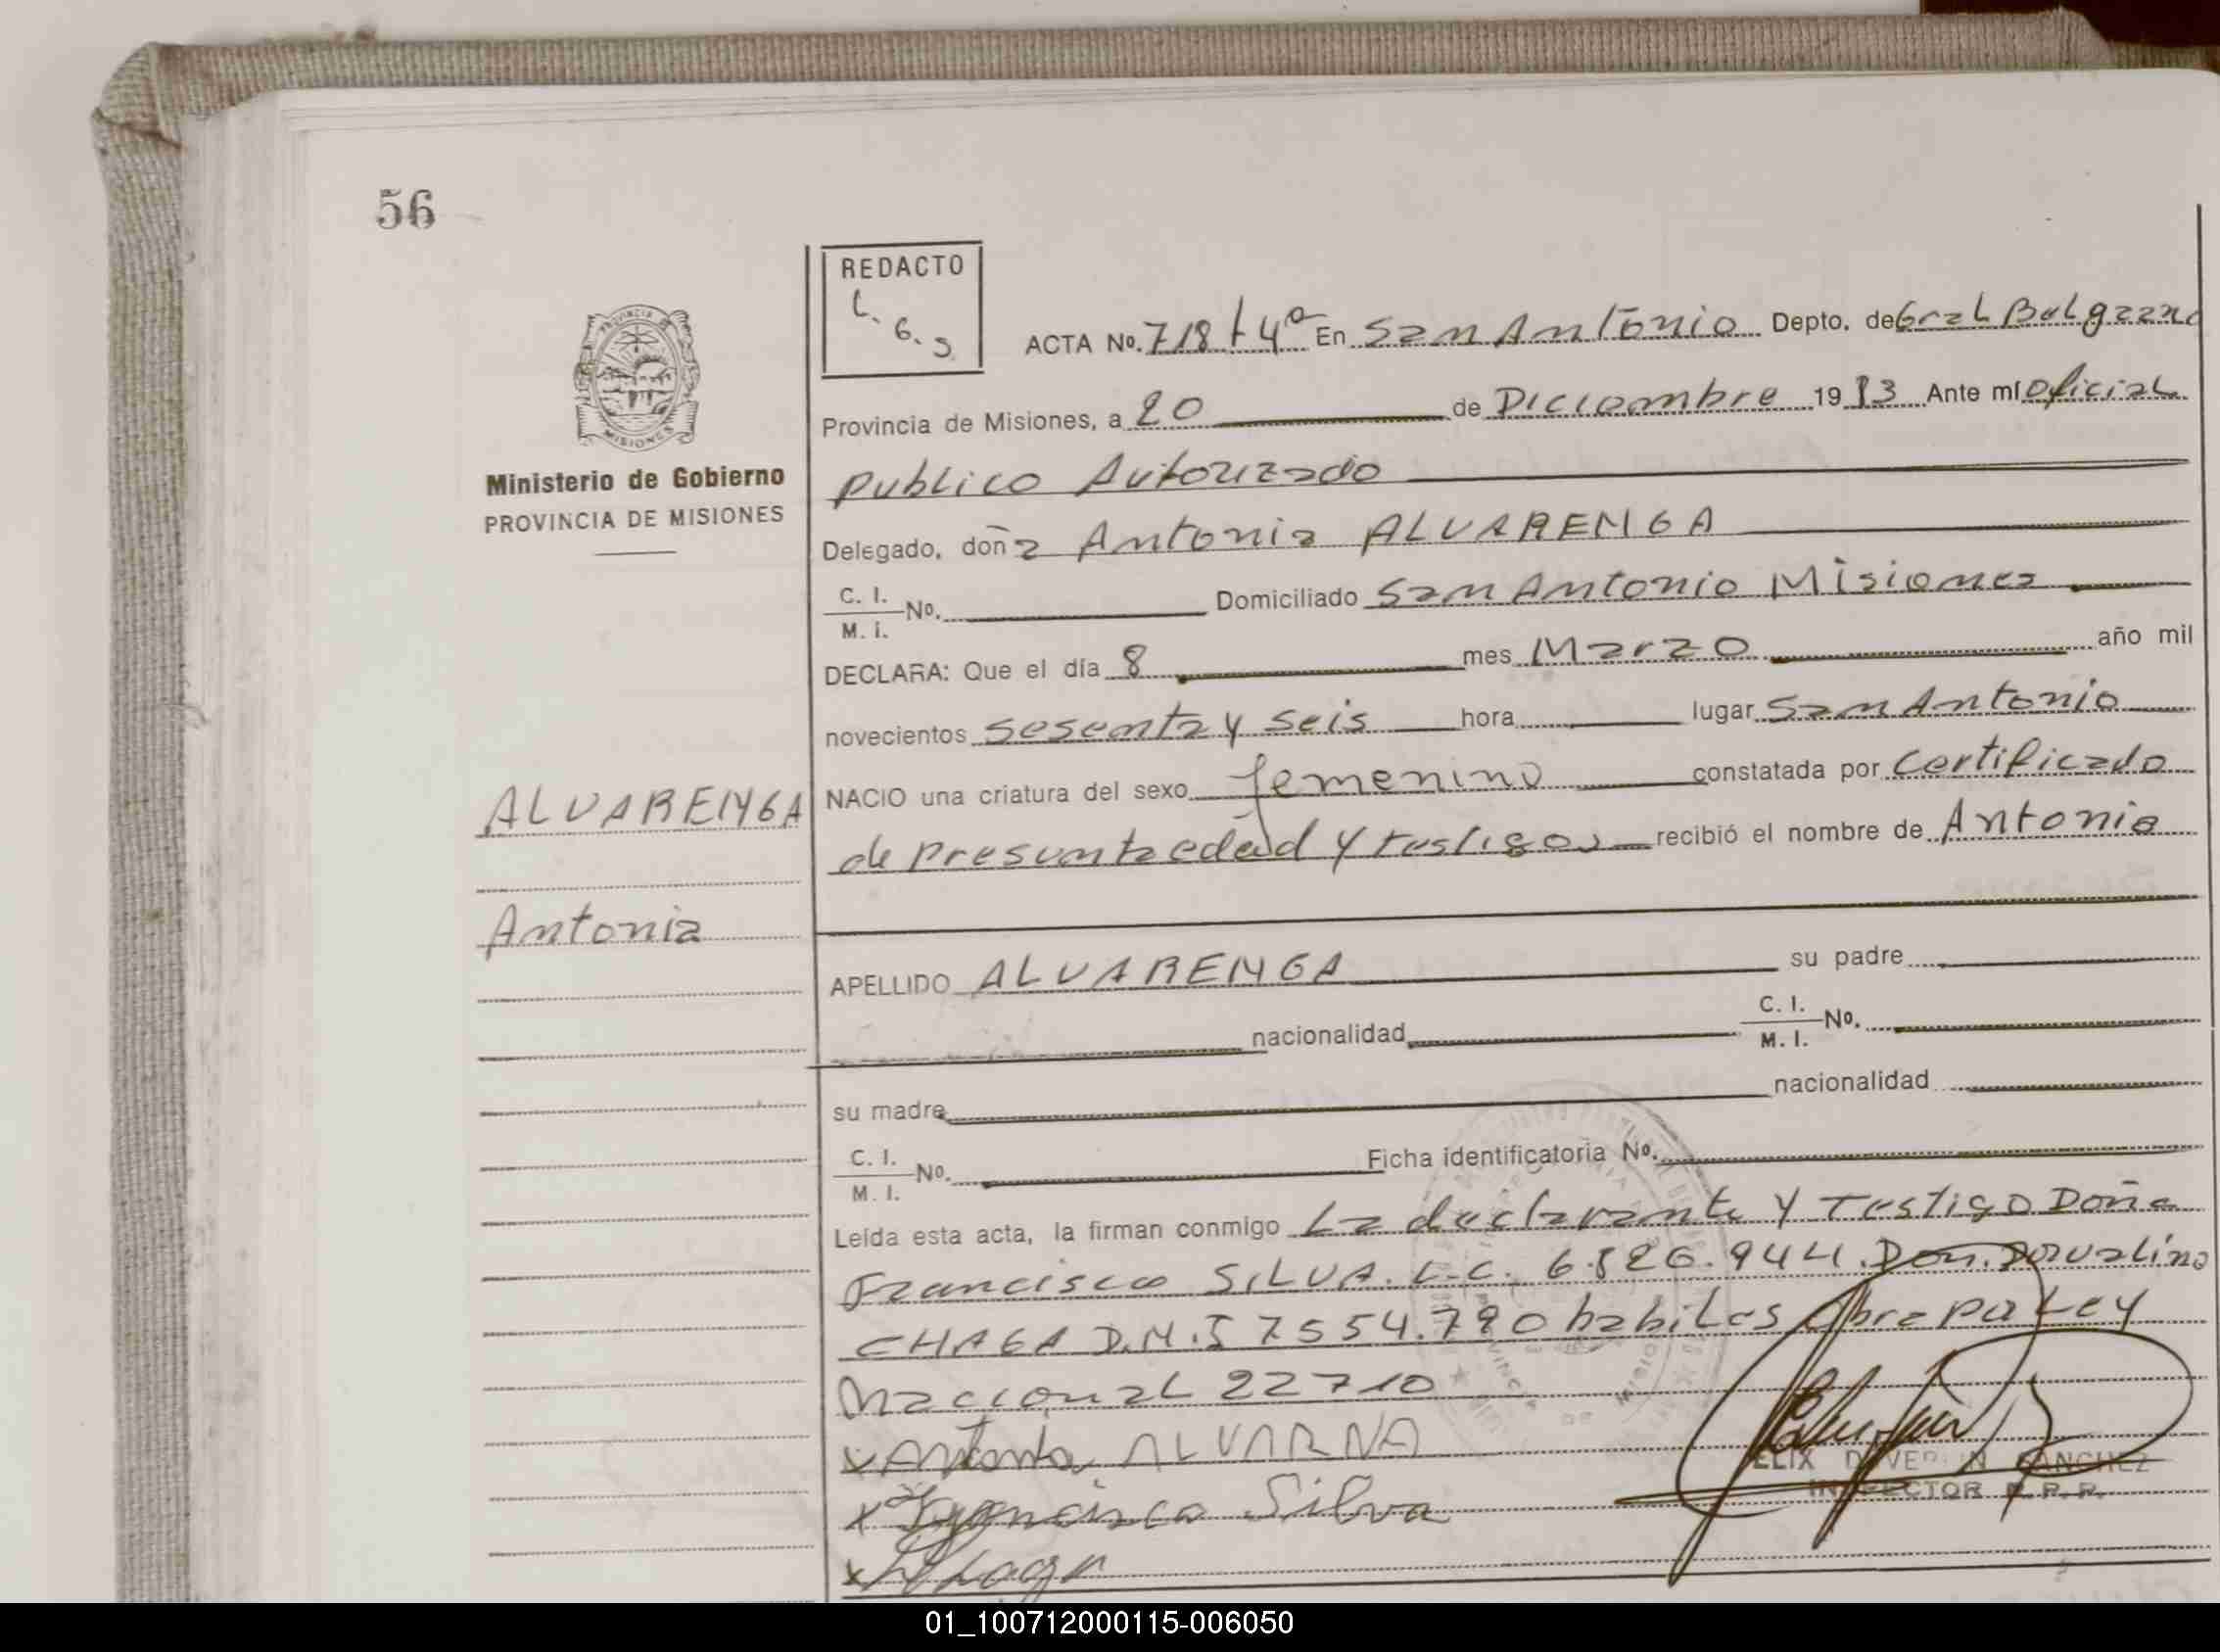 56
REDACTO
L. G. S.
ACTA No. 718 t 4ª En San Antonio Depto. de Gral Belgrano
Provincia de Misiones, a 20 de Diciembre 1983 Ante mí Oficial
Publico Autorizado
Ministerio de Gobierno
PROVINCIA DE MISIONES
Delegado, doña Antonia ALVARENGA
C. I.
M. i. No. Domiciliado San Antonio Misiones
DECLARA: Que el día 8 mes Marzo año mil
novecientos sesenta y seis hora lugar San Antonio
NACIO una criatura del sexo femenino constatada por Certificado
de Presunta edad y testigos recibió el nombre de Antonia
ALVARENGA
Antonia
APELLIDO ALVARENGA su padre
nacionalidad C. I.
M. I. No.
su madre nacionalidad
C. I.
M. I. No. Ficha identificatoria No.
Leída esta acta, la firman conmigo La declarante y Testigo Doña
Francisca SILVA. L.C. 6.826.944. Don. Dorvalino
CHAGA D.N.I 7.554.790 habiles Ley
Nacional 22710
x Antonia ALVARNA
x Francisca Silva
x Chaga
FELIX SANCHEZ
INSPECTOR R. P. P.
01_100712000115-006050